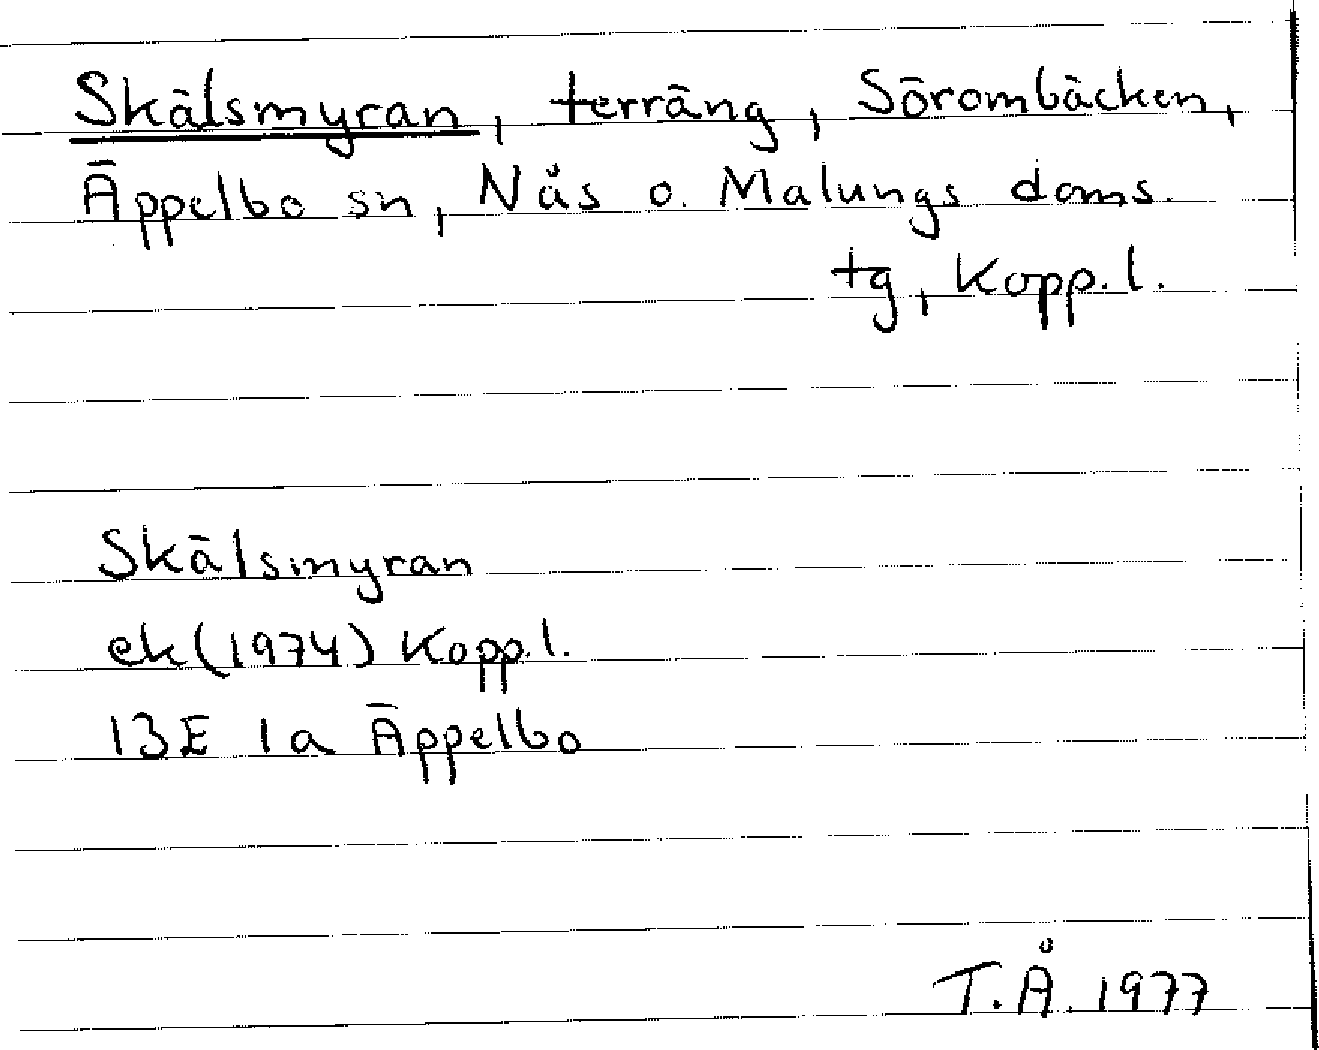 Skälsmyran, terräng, Sörombäcken,
Äppelbo sn, Nås o. Malungs doms.
tg, Kopp.l.
Skälsmyran
ek(1974) Kopp.l.
13E 1a Äppelbo
T.Å. 1977